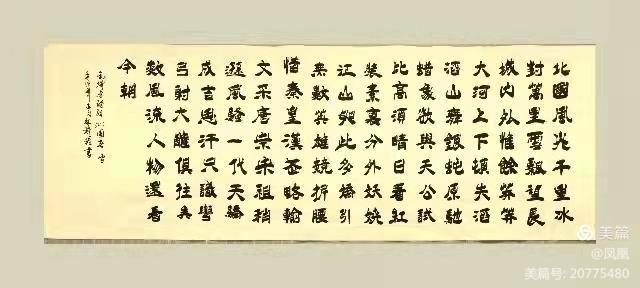 北國風光千里冰
封萬里雪飄望長
城內外惟餘莽莽
大河上下頓失滔
滔山舞銀蛇原馳
蠟象欲與天公試
比高須晴日看紅
裝素裹分外妖嬈
江山如此多嬌引
無數英雄競折腰
惜秦皇漢武略輸
文采唐宗宋祖稍
遜風騷一代天驕
成吉思汗只識彎
弓射大雕俱往矣
數風流人物還看
今朝
沁園春 雪
美篇
@凤凰
美篇号: 20775480